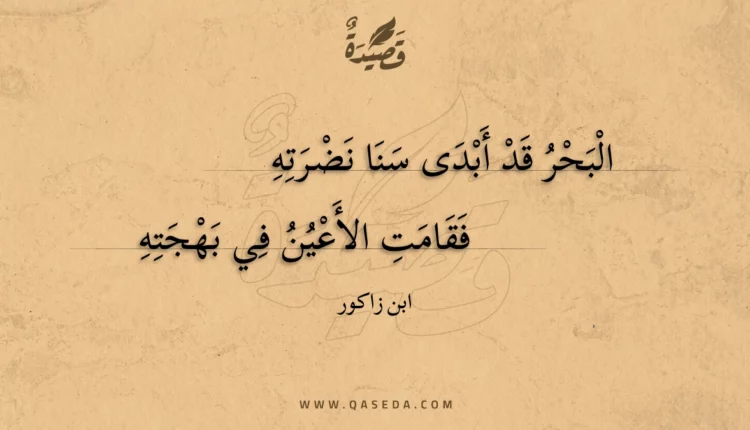 قَصِيدَةٌ
الْبَحْرُ قَدْ أَبْدَى سَنَا نَضْرَتِهِ
فَقَامَتِ الأَعْيُنُ فِي بَهْجَتِهِ
ابن زاكور
WWW.QASEDA.COM